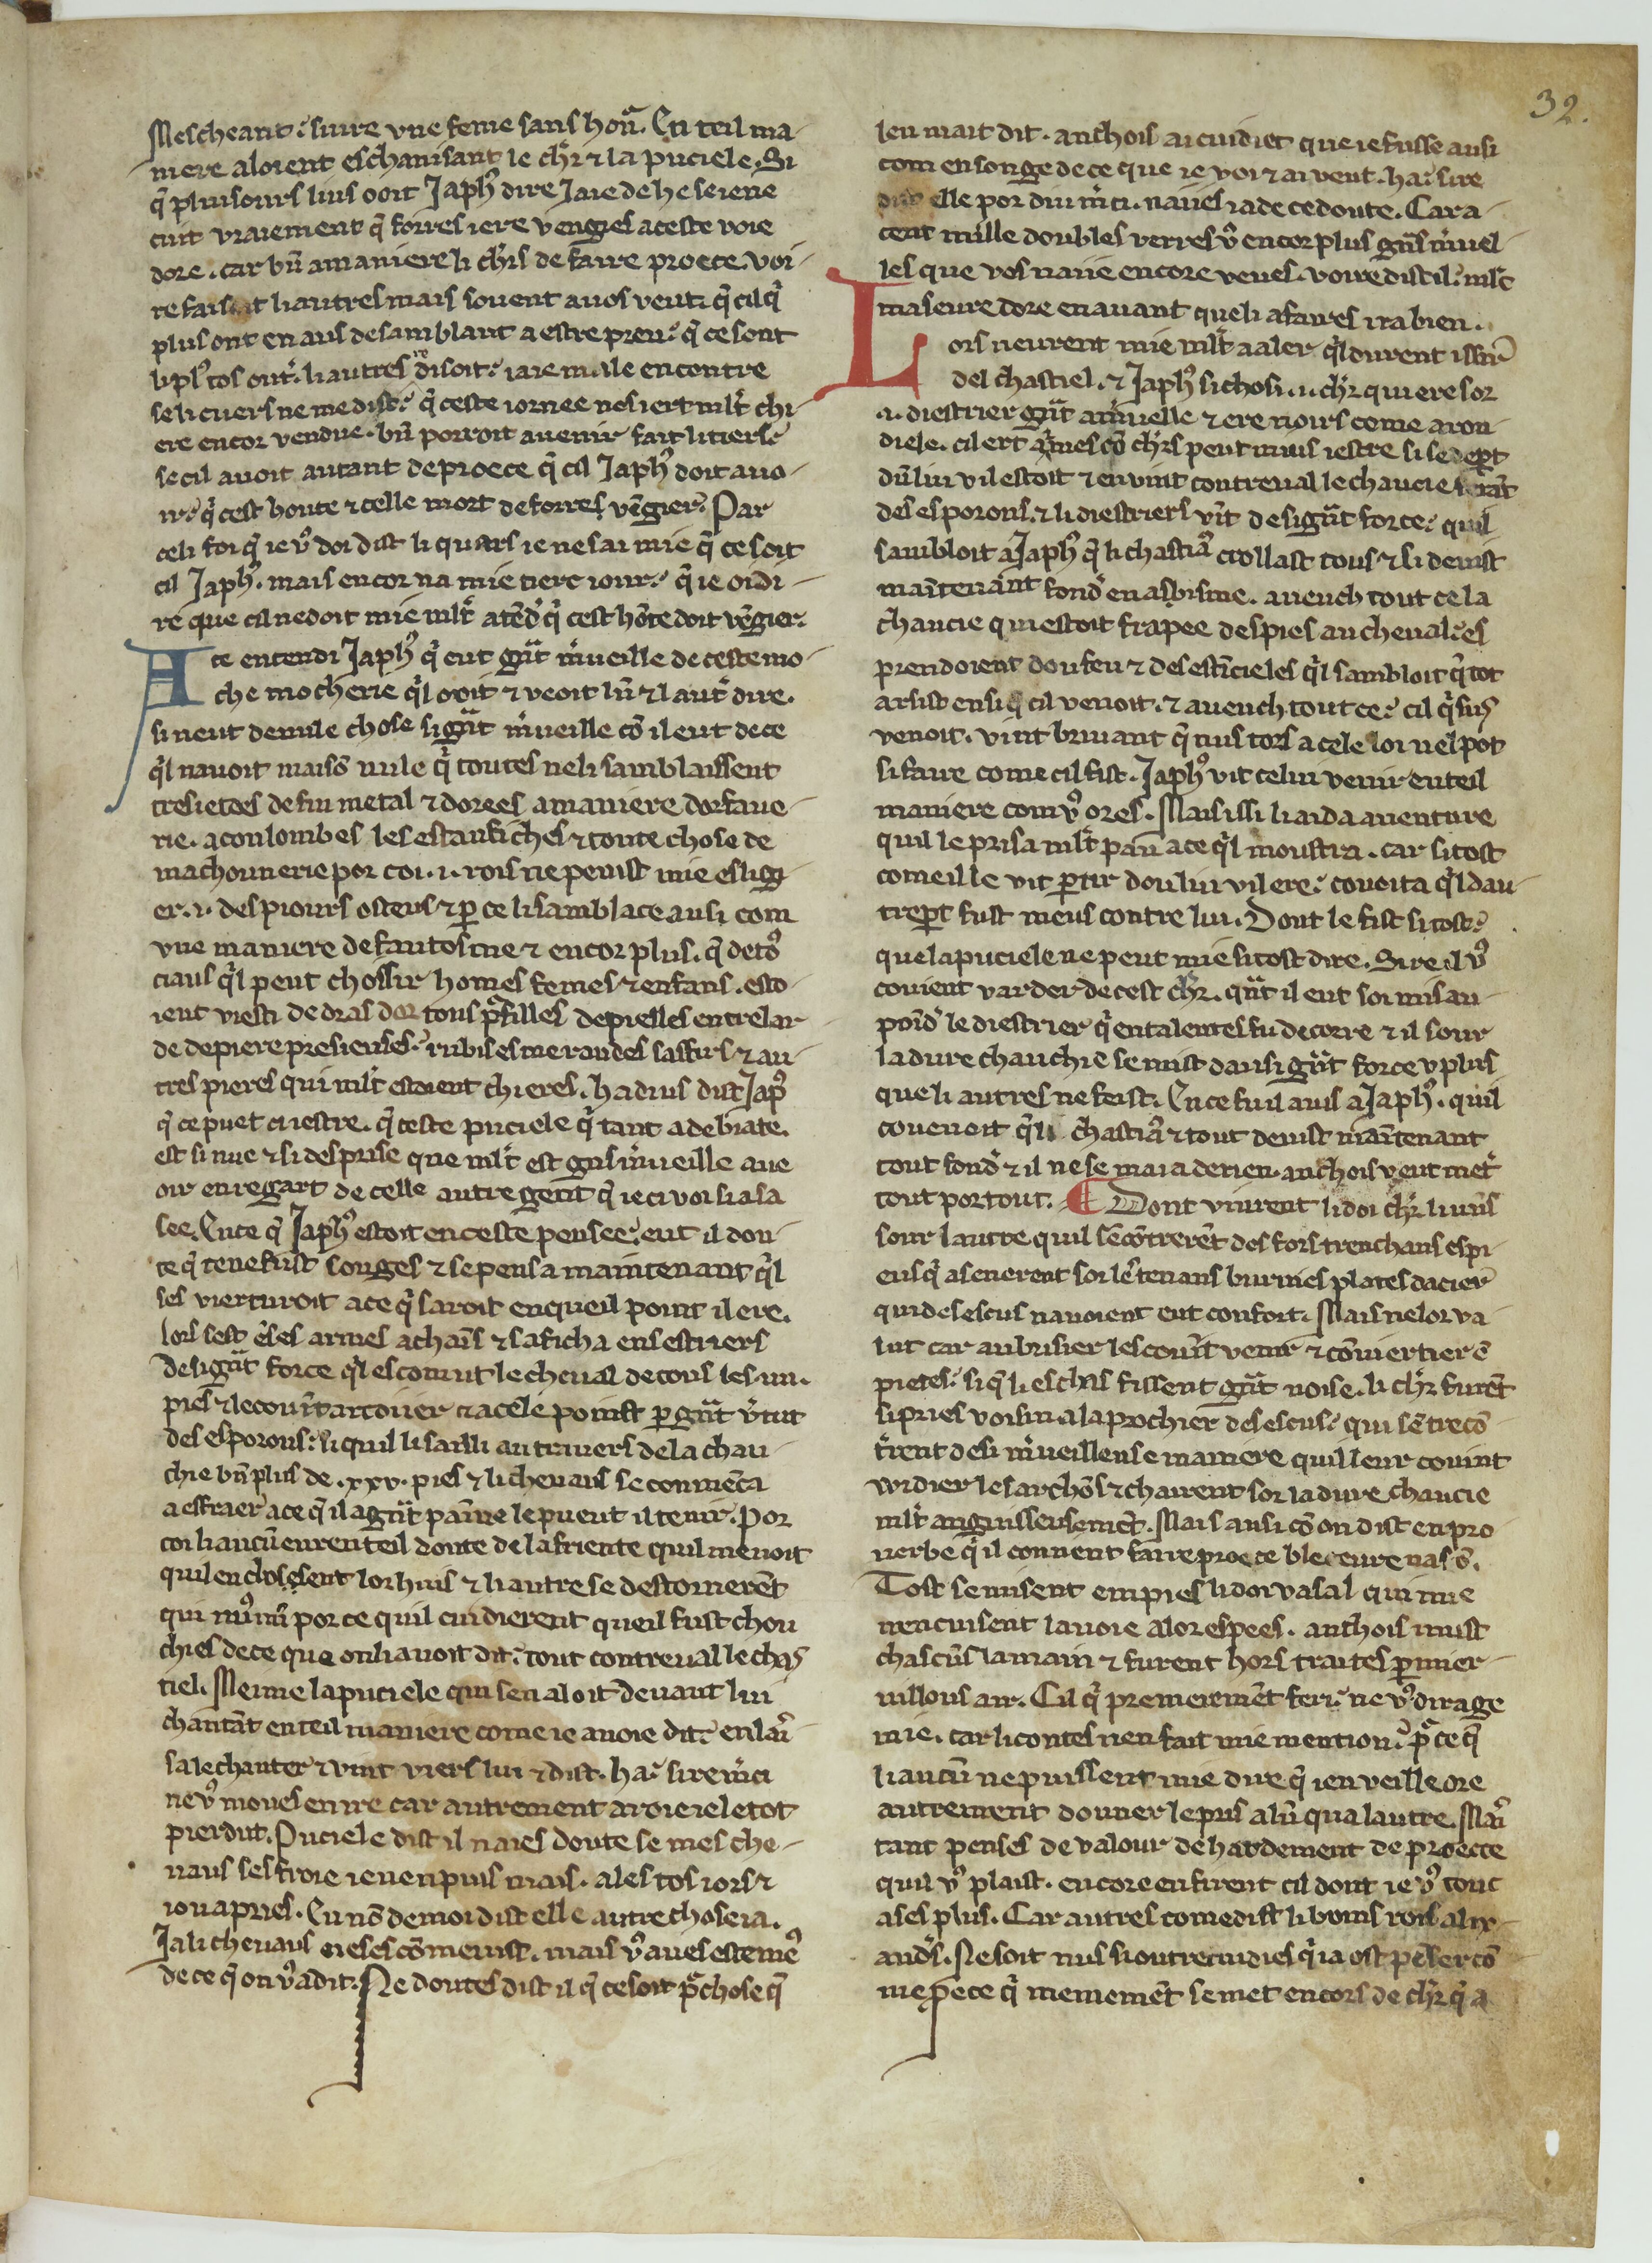 32.
Mescheant. suire vne feme sans honͬ. En teil ma-
niere aloient eschanisant le chꝉr ⁊ la puciele. Si
q̃ pluisours liius ooit Japhꝰ dire Jaie dehe se iene
cuit vraiement q̃ forres iere vengies a ceste voie
dore. car bñ a maniere li chꝉrs de faire proece. voi-
re faisoit li autres mais souent auos veut q̃ cil qͥ
plus ont en aus de samblant a estre preu. q̃ ce sont
li plꝰ tos outͬ. li autres disoit. iaie male encontre
se li cuers ne me dist. q̃ ceste iornee nos iert mlt̃ chi-
ere encor vendue. bñ porroit auenir fait li tiers.
se cil auoit autant de proece q̃ cil Japhꝰ doit auo-
ir. q̃ cest honte ⁊ celle mort de forres vẽgier. Par
celi foi q̃ ie vꝰ doi dist li quars ie ne sai mie q̃ ce soit
cil Japhꝰ. mais encor na mie tierc iour. q̃ ie oi di-
re que cil ne doit mie mlt̃ atẽdͬ q̃ cest hõte doit vẽgier.
A ce entendi Japhꝰ q̃ eut gͣt mͬueille de ceste mo-
che mocherie qͥl ooit ⁊ veoit lũ ⁊ lautͬ dire.
si neut de nule chose si gͣt mͬueille cõ il eut de ce
qͥl nauoit maisõ nule q̃ toutes ne li samblaissent
tresietees de fin metal ⁊ dorees a maniere dorfaue-
rie. a coulombes les estaufiches ⁊ toute chose de
machounerie por coi .i. rois ne peuist mie eslig-
er .i. des piours osteus ⁊ ꝑ ce li sambla ce ausi com
vne maniere de fantosme ⁊ encor plus. q̃ de toꝰ
ciaus qͥl peut choissir homes femes ⁊ enfans. esto-
ient viesti de dras dor tous pͬfilles de pielles entrelar-
de de piere presieuses. rubis esmeraudes saffirs ⁊ au-
tres pieres qui mlt̃ estoient chieres. ha dius dist Japꝰ
q̃ ce puet ci iestre. q̃ ceste puciele qͥ tant a de biate.
est si nue ⁊ si desprise que mlt̃ est gͣs mͬueille aue
oir en regart de celle autre gent q̃ ie ci voi si a sa
see. En ce q̃ Japhꝰ estoit en ceste pensee. eut il dou-
te q̃ ce ne fust songes ⁊ se pensa maintenant qͥl
ses vierturoit a ce q̃ saroit en queil point il ere.
lors sest ẽ ses armes achaĩs ⁊ saficha en sestriers
de si gͣt force qͥl escomut le cheual de tous les .iiii.
pies ⁊ le couĩt artoiier ⁊ a cele point ꝑ gͣt vͬtut
des esporons. si quil li sailli au trauiers de la chau-
chie bñ plus de .xxv. pies ⁊ li cheuaus se conmẽca
a effraer a ce q̃ il a gͣt painne le pueut il tenir. Por
coi li aucũ eurent teil doute de la friente quil menoit
quil enclosesent lor huis ⁊ li autre se destornerẽt
qui mͬ mͬ por ce quil cuidierent queil fust chou
chies de ce que on li auoit dit. tout contreual le chas
tiel. Meime la puciele qui sen aloit deuant lui
chantãt en teil maniere come ie auoie dit. en laiͬ
sa le chanter ⁊ vint viers lui ⁊ dist. ha. sire mͬci
ne vꝰ moues en ire car autrement aroie ie le tot
pierdut. Puciele dist il naies doute se mes che-
uaus ses froie ie nen puis mais. ales tos iors ⁊
iou apries. En nõ de moi dist elle autre chose ia.
Ja li cheuaus ne ses cõmeuist. mais vꝰ aues este meꝰ
de ce q̃ on vꝰ a dit. Ne doutes dist il q̃ ce soit pͬ chose q̃
len mait dit. anchois ai cuidiet que ie fusse ausi
com en songe de ce que ie voi ⁊ ai veut. ha. sire
dist elle por diu mͬci. naies ia de ce doute. Car a-
cent mille doubles verres vꝰ encor plus gͣs mͬuel-
les que vos naiie encore veues. voire dist il. mͬlc
ma seure dore en auant que li afaires ira bien.
Lors neurent mie mlt̃ a aler qͥl durent issir
del chastiel. ⁊ Japhꝰ si chosi .i. chꝉr qui ere sor
.i. diestrier gͣt a mͬuelle ⁊ ere noirs come aron
diele. cil ert armes cõ chꝉrs peut miius iestre si se depͬt
du liu v il estoit ⁊ en vint contreual le chaucie
des esporons. ⁊ li diestriers vĩt de si gͣt force. quil
sambloit a Japhꝰ q̃ li chastiaͬ crollast tous ⁊ si deuist
maĩtenant fondͬ en abisme. aueuch tout ce la
chaucie qui estoit frapee des pies au cheual. es
prendoient dou feu ⁊ des estĩcieles qͥl sambloit q̃ tot
arsist ensi q̃ cil venoit. ⁊ aueuch tout ce. cil qͥ sus
venoit. vint bruiant q̃ nus tors a cele loi nel pot
si faire come cil fist. Japhꝰ vit celui venir en teil
maniere com vꝰ ores. Mais issi li aida auenture
quil le prisa mlt̃ pau a ce qͥl moustra. car si tost
come ille vit ꝑtir dou liu v il ere. couoita qͥl dau-
tre pͬt fust meus contre lui. Dont le fist si tost.
que la puciele ne peut mie si tost dire. Sire il vꝰ
couient varder de cest chꝉr. qͣt il eut soi mis au
poĩdͬ le diestrier q̃ entalentes fu de corre ⁊ il sour
la dure chauchie se mist dausi gͣt force v plus
que li autres ne feist. En ce fu il auis a Japhꝰ. quil
couenoit q̃ li chastiaͬ ⁊ tout deuist maĩtenant
tout fondͬ ⁊ il ne se maia de rien. anchois veut metͬ
tout por tout. ¶ Dont vinrent li doi chꝉr li uns
sour lautre quil sẽcõtrerẽt des fors trenchans espi-
eus qͥ asenerent sor les tenans burnies plates dacier
qui des escus nauoient eut confort. Mais ne lor va-
lut car au brisier les couĩt venir ⁊ cõuiertier ẽ
pietes. si q̃ li esclas fissent gͣt noise. li chꝉr furẽt
si pries voisin a laprochier des escus. qui sẽtrecõ-
trent de si mͬueilleuse maniere quil leur couint
widier les archõs ⁊ chairent sor la dure chaucie
mlt̃ anguisseusemẽt. Mais ausi cõ on dist en pro
uerbe q̃ il conuent faire proece bleceure nas õ.
Tost se misent em pies li doi vasal qui mie
nencuisent la uoie a lor espees. anchois i mist
chascũs la main ⁊ furent hors traites ꝑ mer-
uillous air. Cil qͥ premieremẽt feri. ne vꝰ dirage
mie. car li contes nen fait mie mention. pͬ ce q̃
li aucũ ne puissent mie dire q̃ ien veille ore
autrement douner le pris a lũ qua lautre. Maiͬ
tant penses de valour de hardement de proecce
quil vꝰ plaist. encore en firent cil dont ie vꝰ conc
ases plus. Car autres come dist li bouns rois alix-
andͬs. Ne soit nus si outrecuidies qͥ ia ost peser cõ
me pece q̃ memement se met en cors de chꝉr q̃ a